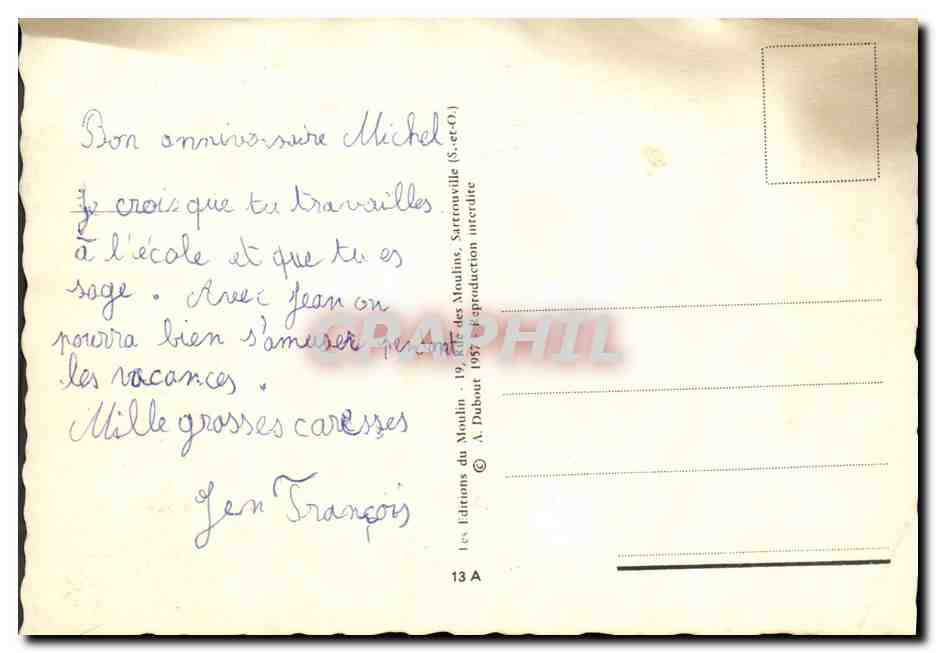 Bon anniversaire Michel
Je crois que tu travailles
à l'école et que tu es
sage. Avec Jean on
pourra bien s'amuser pendant
les vacances.
Mille grosses caresses
Jen François
Les Editions du Moulin - 19, Rue des Moulins, Sartrouville (S.-et-O.)
© A. Dubout 1957 - Reproduction interdite
13 A
CPAPHIL